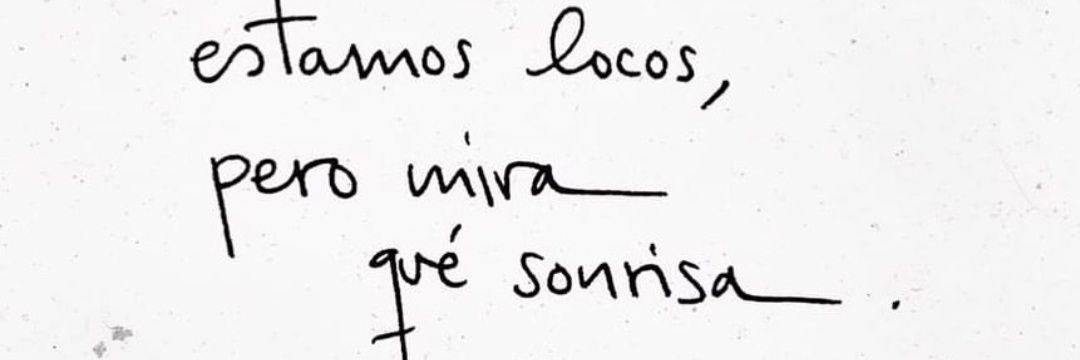 estamos locos,
pero mira
qué sonrisa.